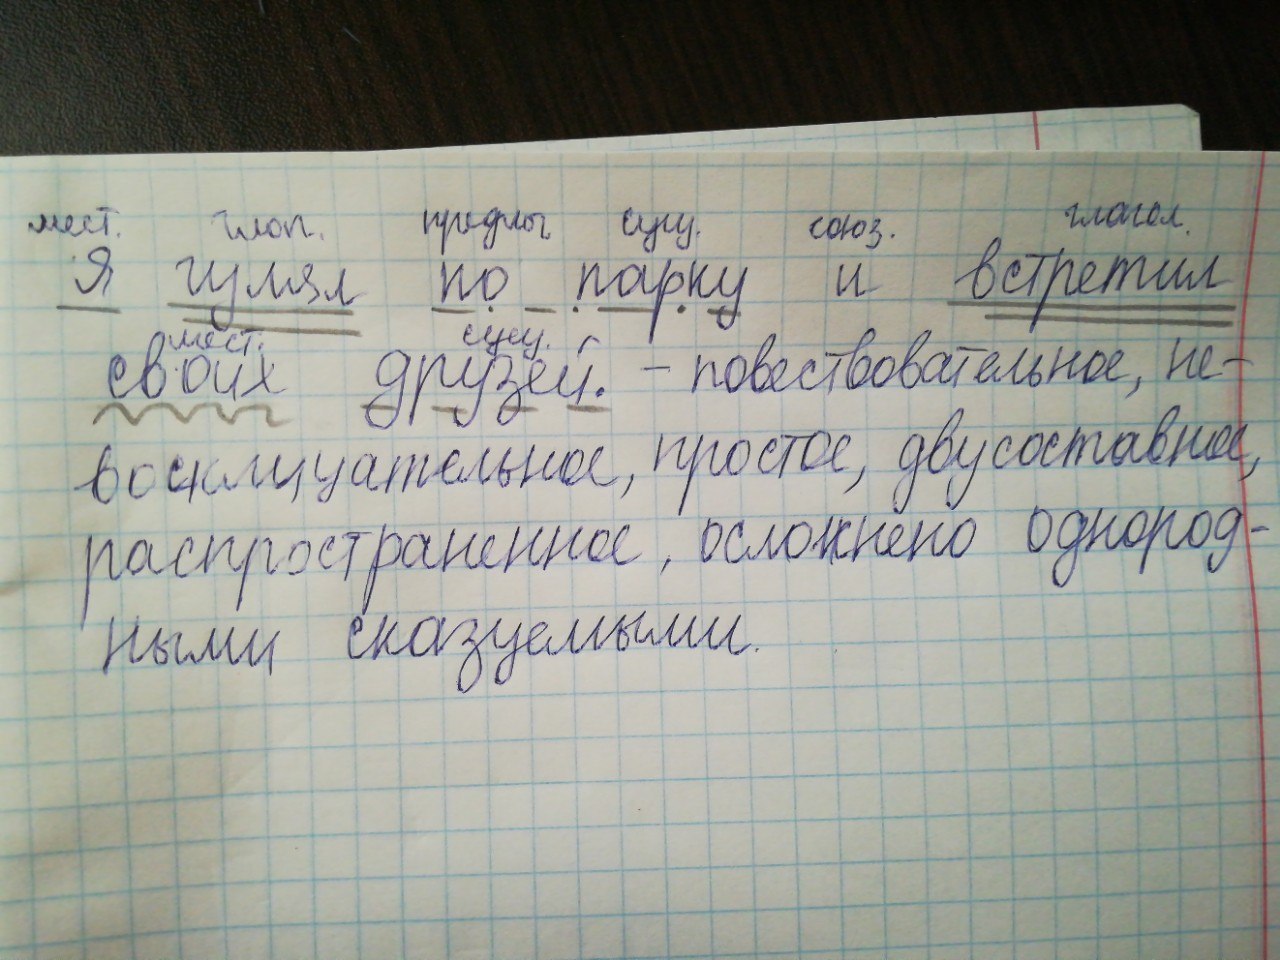 мест. глаг. предлог сущ. союз. глагол.
Я гулял по парку и встретил
мест. сущ.
своих друзей. - повествовательное, не-
восклицательное, простое, двусоставное,
распространенное, осложнено однород-
ными сказуемыми.